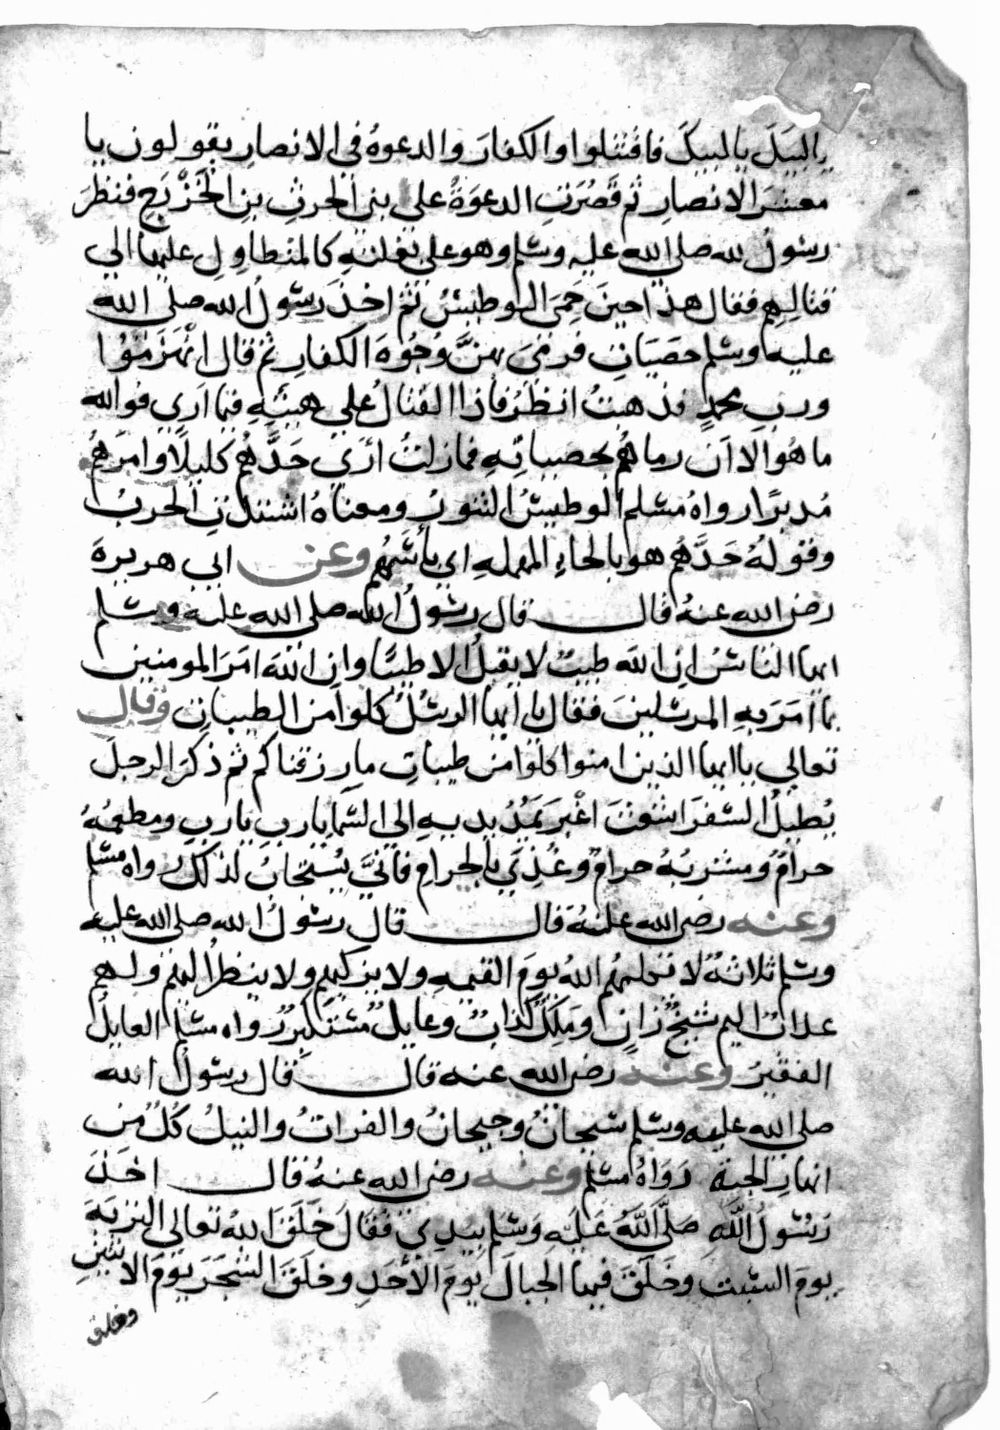 يالبيك يالبيك فاقتتلوا والكفارَ والدعوهُ في الانصارِ يقولون يا
معشرَ الانصارِ ثم قصُرَتِ الدعوَةُ على بني الحرثِ بنِ الخَزْرَجِ فنظرَ
رسولُ لله صلى الله عليه وسلم وهو على بغلتهِ كالمتطاوِلِ عليها الي
قتالِهِم فقال هذا حينَ حَمِيَ الوطيسُ ثم اخذَ رَسُولُ الله صلى الله
عليه وسلم حصَيَاتٍ فرَمىَ بهنَّ وُجُوهَ الكفارِ ثم قال انْهَزَمُوْا
وربِ محمدٍ فذهبتُ انظُرُ فاذا القتالُ على هيئتِهِ فيما اَرى فوالله
ما هُوَ الا اَن رماهُم بحصياتِهِ فمازلتُ اَرَى حَدَّهُم كليلًا وامرَهُم
مُدبرًا رواهُ مُسلم الوطيسُ التنورُ ومعناهُ اشتدتِ الحربُ
وقولُهُ حَدَّهُم هو بالحاءِ المهملهِ اي بأسَهُم وعن ابي هريرةَ
رضى الله عنهُ قال قال رسُولُ الله صلى الله عليه وسلم
ايها الناسُ اِنَ اللهَ طيبٌ لا يقبلُ الا طيبًا وان اللهَ امَرَ المومنين
بما امَرَ بهِ المرسلينَ فقال يا ايها الرسُلُ كلوا من الطيباتِ وقال
تعالى يا ايها الذين امنوا كلوا من طيباتِ ما رزقناكم ثم ذكرَ الرجلَ
يُطيلُ السفرَ اشعثَ اغْبَرَ يَمُدُ يديهِ الى السَّما يا ربِ يا ربِ ومطعمُهُ
حرامٌ ومشربُهُ حرامٌ وغُذِيَ بالحرامِ فانَّي يُستَجابُ لذلك رواه مسلم
وعنه رضى الله عنهُ قال قال رسُولُ الله صلى الله عليه
وسلم ثلاثةٌ لا يكلمهُم اللهُ يومَ القيمهِ ولا يزكيهِم ولا ينظرُ اليهم ولهم
عذابٌ اليم شيخٌ زانٍ ومَلِكٌ كذابٌ وعايلٌ مُستكبِرٌ رواه مسلم العايلُ
الفقيرُ وعنه رضى الله عنه قال قال رسُولُ الله
صلى الله عليه وسلم سَيحانُ وجيحانُ والفراتُ والنيلُ كُلٌ من
انهارِ الجنة رَوَاهُ مسلم وعنه رضى الله عنهُ قال اخَذَ
رَسُولُ اللَّهِ صَلَّى اللَّهُ عَلَيْهِ وَسَلَّم بيدِي فَقَالَ خَلَقَ اللهُ تعالى التربَةَ
يومَ السبت وخَلَقَ فيها الجبالَ يَومَ الاَحَدِ وخلَقَ الشَجَرَ يَومَ الاثنينِ
وخلق